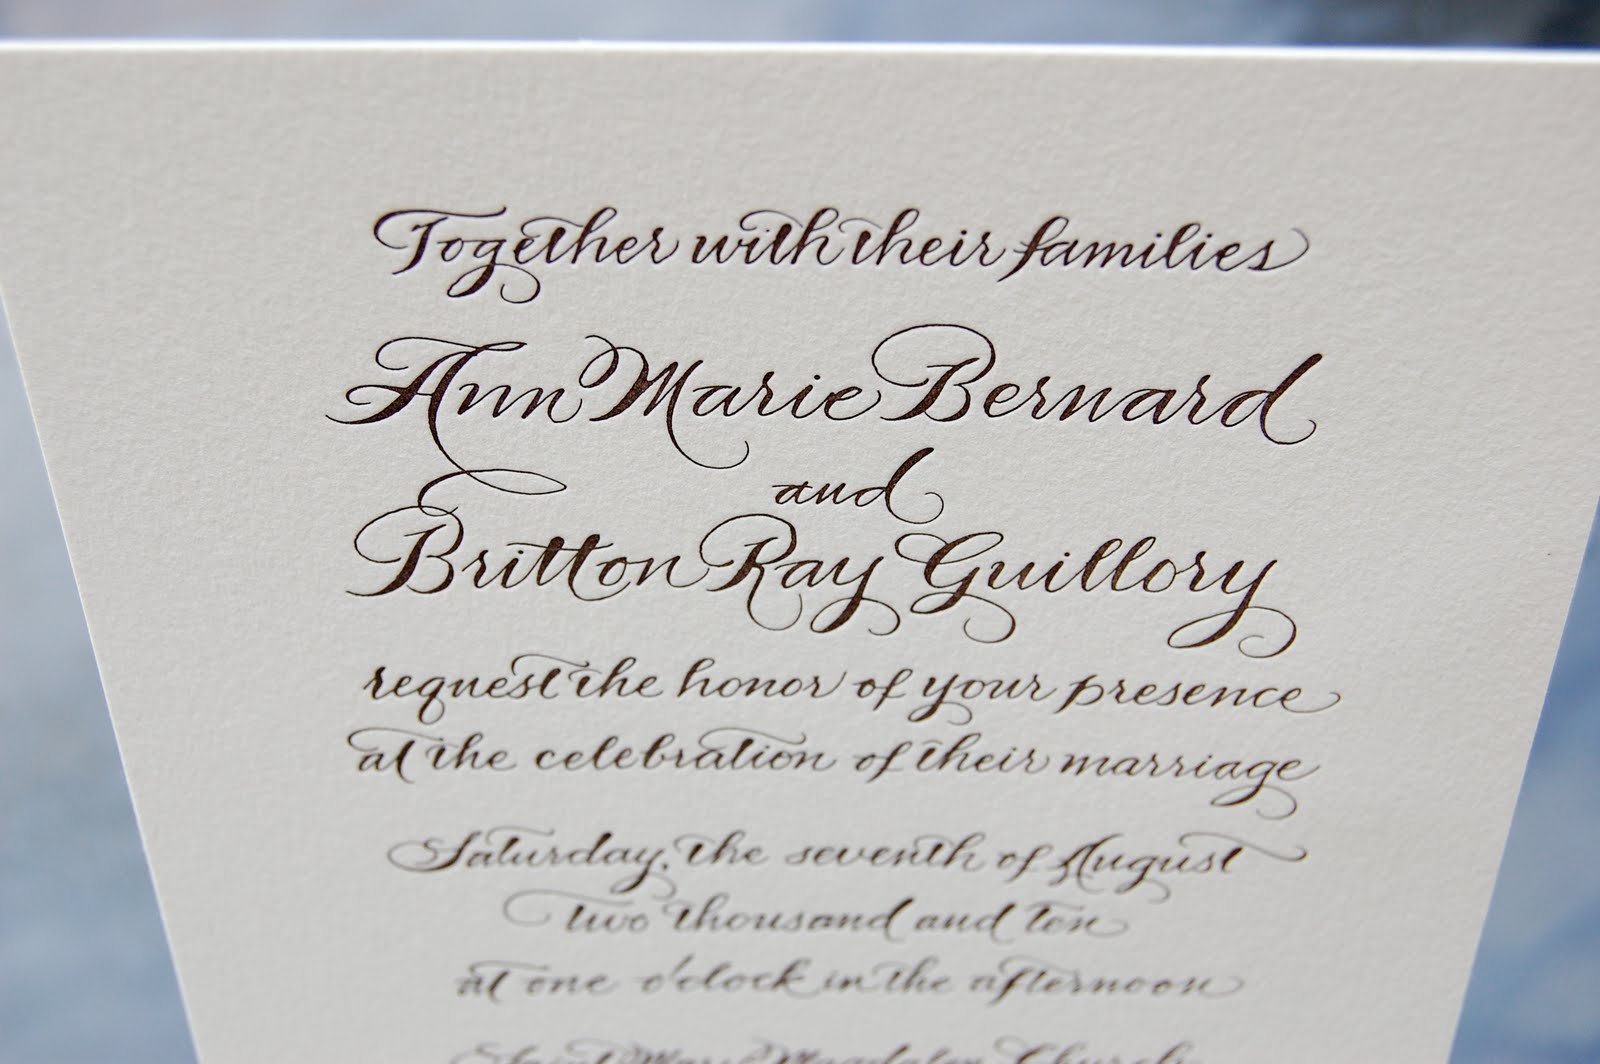 Together with their families
Ann Marie Bernard
and
Britton Ray Guillory
request the honor of your presence
at the celebration of their marriage
Saturday, the seventh of August
two thousand and ten
at one o'clock in the afternoon
Saint Mary Magdalen Church